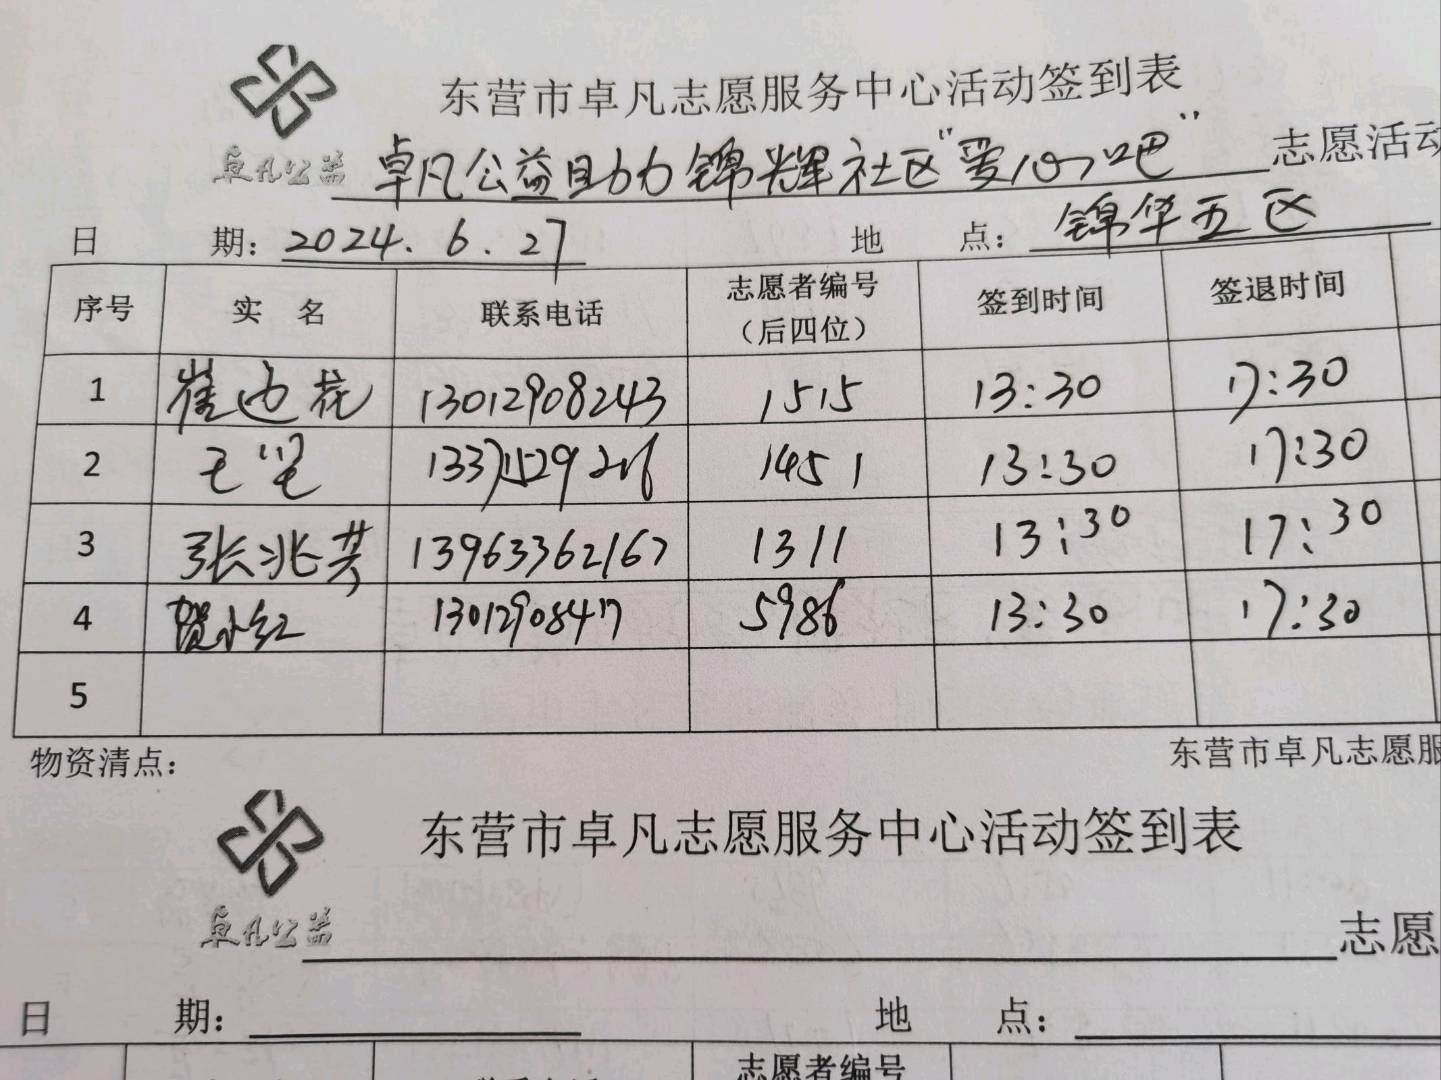 东营市卓凡志愿服务中心活动签到表
卓凡公益 卓凡公益助力锦辉社区"爱心吧" 志愿活动
日 期：2024.6.27 地 点：锦华五区
序号 实 名 联系电话 志愿者编号（后四位） 签到时间 签退时间
1 崔迎花 13012908243 1515 13:30 17:30
2 王 1451 13:30 17:30
3 张兆芳 13963362167 1311 13:30 17:30
4 贺小红 1301290847 5986 13:30 17:30
5
物资清点： 东营市卓凡志愿服
东营市卓凡志愿服务中心活动签到表
卓凡公益 志愿
日 期： 地 点：
志愿者编号